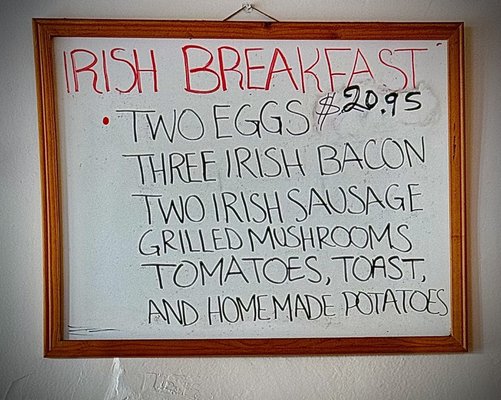 IRISH BREAKFAST
• TWO EGGS $20.95
THREE IRISH BACON
TWO IRISH SAUSAGE
GRILLED MUSHROOMS
TOMATOES, TOAST,
AND HOMEMADE POTATOES